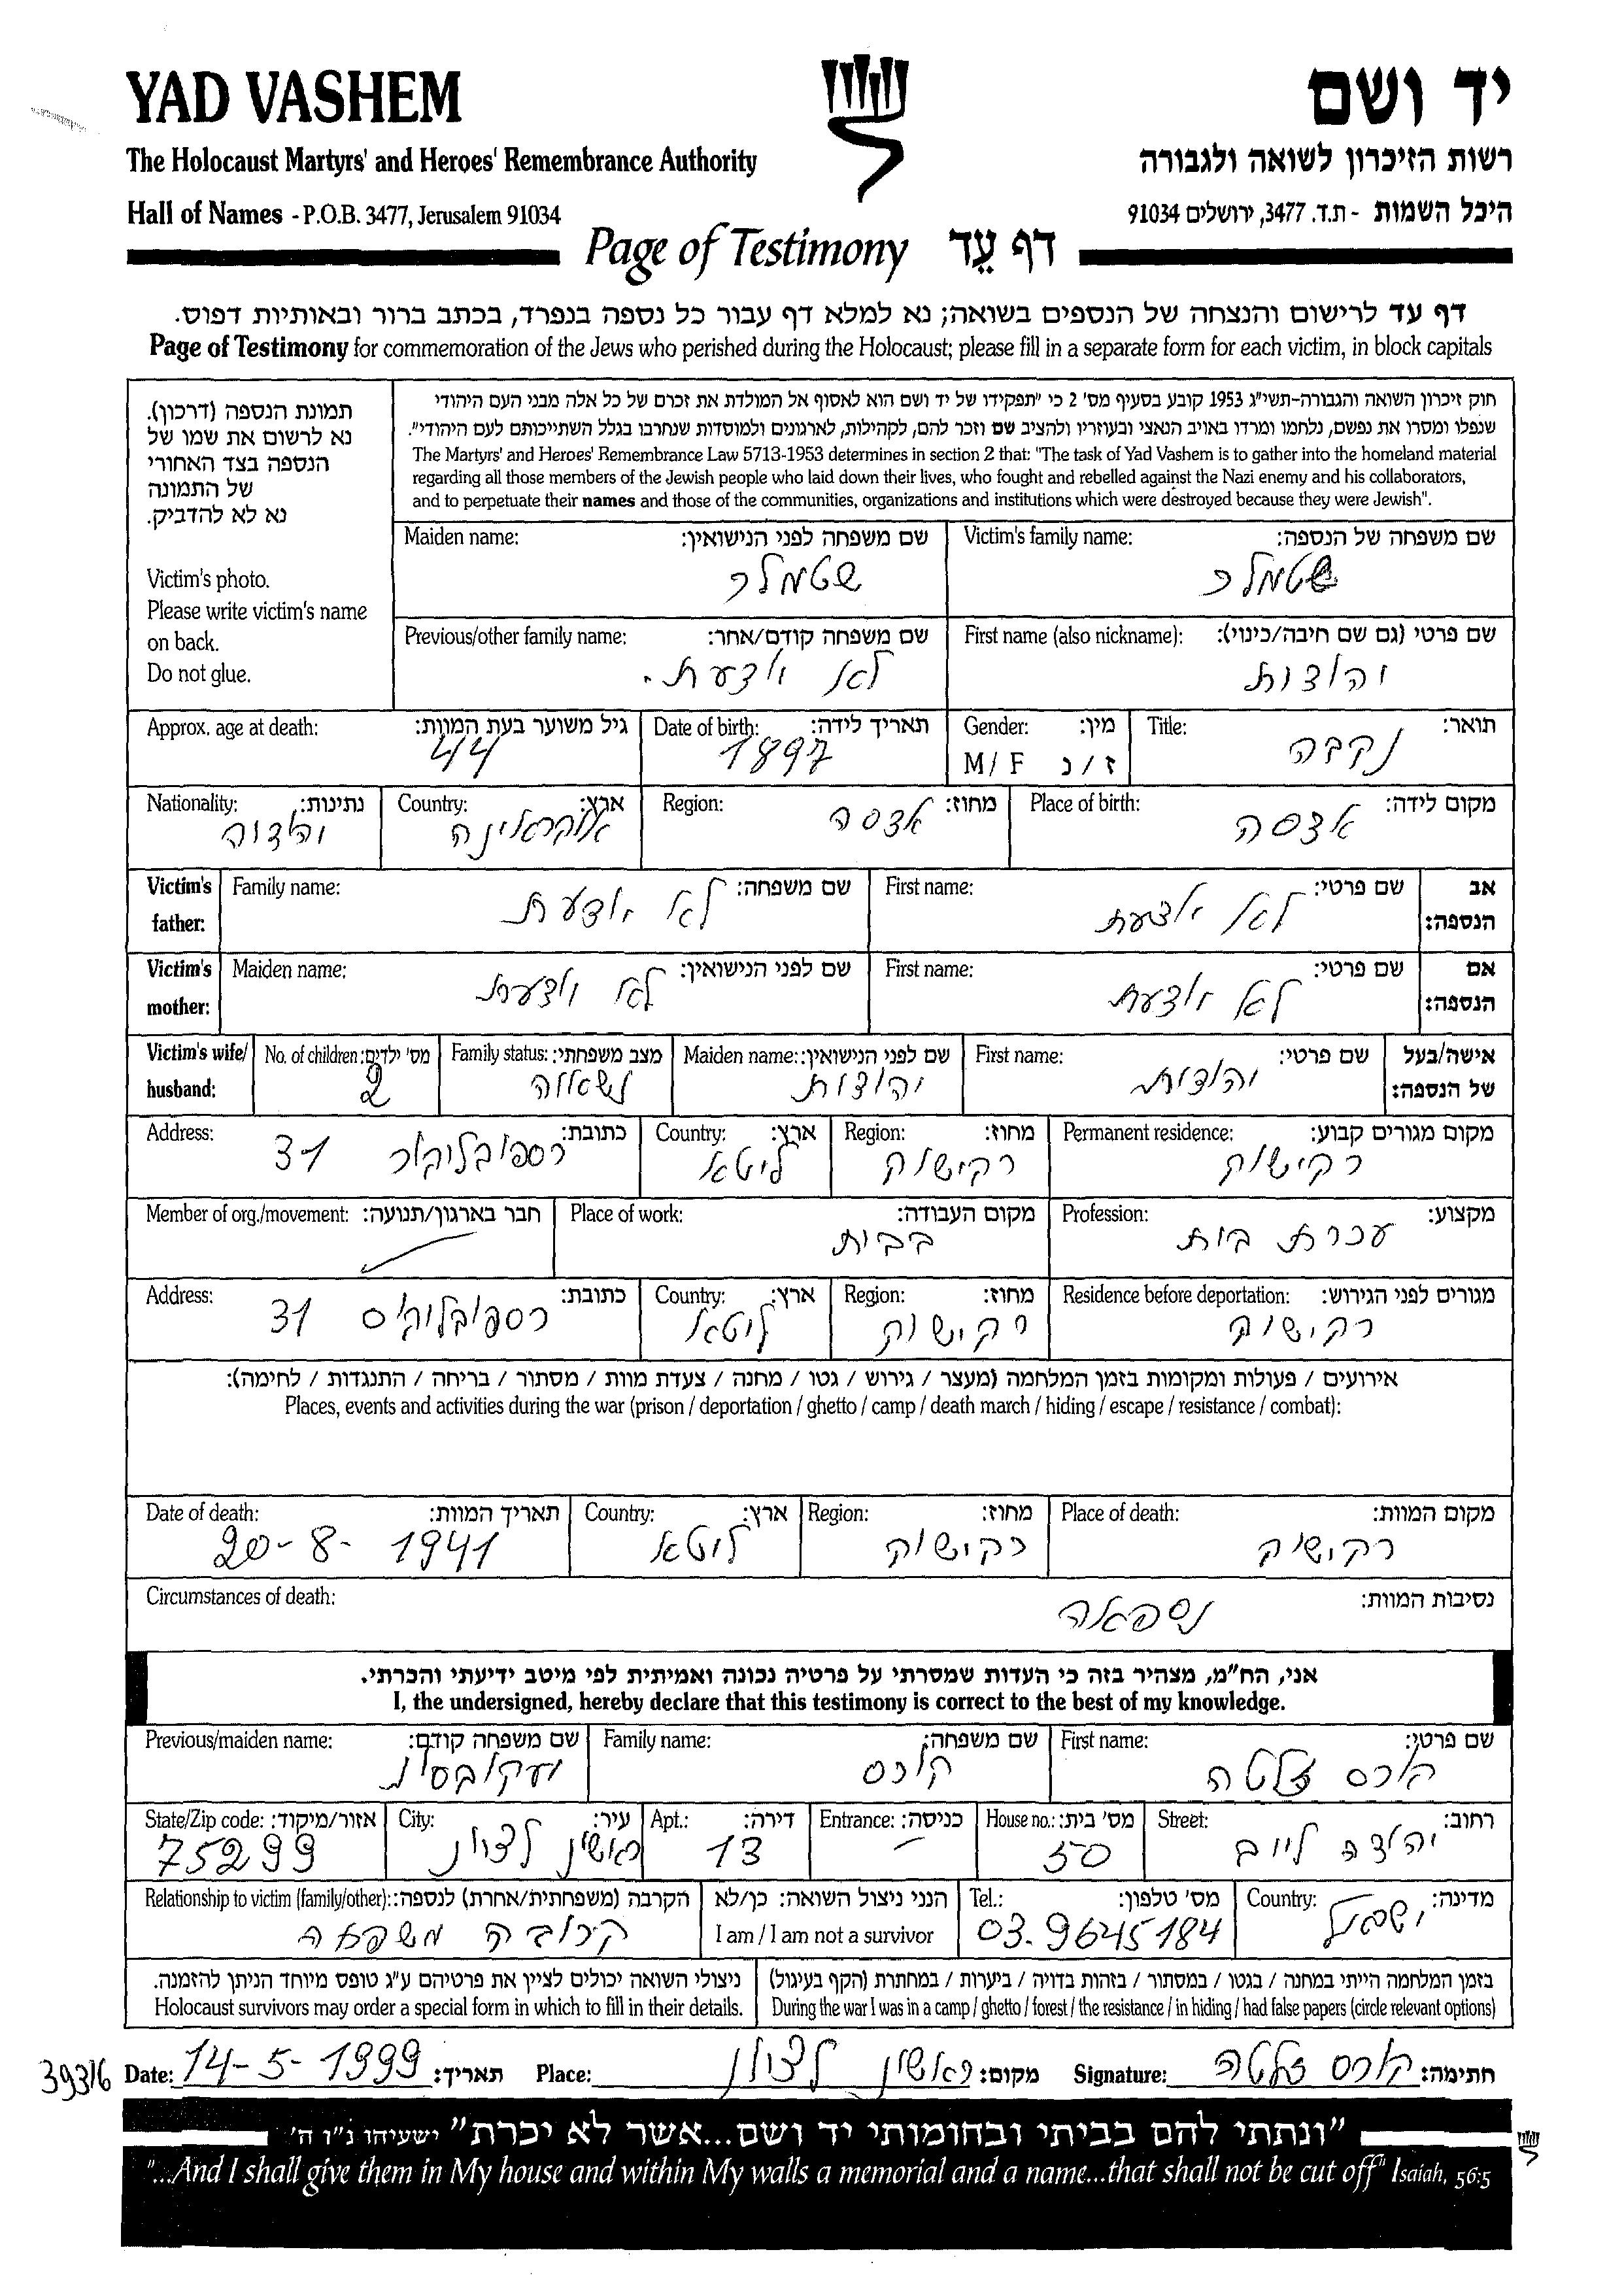 YAD VASHEM יד ושם
The Holocaust Martyrs' and Heroes' Remembrance Authority רשות הזיכרון לשואה ולגבורה
Hall of Names - P.O.B. 3477, Jerusalem 91034 היכל השמות - ת.ד. 3477, ירושלים 91034
Page of Testimony דף עֵד
דף עד לרישום והנצחה של הנספים בשואה; נא למלא דף עבור כל נספה בנפרד, בכתב ברור ובאותיות דפוס.
Page of Testimony for commemoration of the Jews who perished during the Holocaust; please fill in a separate form for each victim, in block capitals
תמונת הנספה (דרכון).
נא לרשום את שמו של
הנספה בצד האחורי
של התמונה
נא לא להדביק.
Victim's photo.
Please write victim's name
on back.
Do not glue.
חוק זיכרון השואה והגבורה-תשי"ג 1953 קובע בסעיף מס' 2 כי "תפקידו של יד ושם הוא לאסוף אל המולדת את זכרם של כל אלה מבני העם היהודי
שנפלו ומסרו את נפשם, נלחמו ומרדו באויב הנאצי ובעוזריו ולהציב שם וזכר להם, לקהילות, לארגונים ולמוסדות שנחרבו בגלל השתייכותם לעם היהודי".
The Martyrs' and Heroes' Remembrance Law 5713-1953 determines in section 2 that: "The task of Yad Vashem is to gather into the homeland material
regarding all those members of the Jewish people who laid down their lives, who fought and rebelled against the Nazi enemy and his collaborators,
and to perpetuate their names and those of the communities, organizations and institutions which were destroyed because they were Jewish".
Victim's family name: שם משפחה של הנספה: Maiden name: שם משפחה לפני הנישואין:
שטמלר שטמלר
First name (also nickname): שם פרטי (גם שם חיבה/כינוי): Previous/other family name: שם משפחה קודם/אחר:
יהודית לא יודעת.
Title: תואר: Gender: מין: Date of birth: תאריך לידה: Approx. age at death: גיל משוער בעת המוות:
נקבה M / F ז / נ 1897 44
Place of birth: מקום לידה: Region: מחוז: Country: ארץ: Nationality: נתינות:
אדסה אדסה אוקראינה יהודיה
אב הנספה: First name: שם פרטי: Family name: שם משפחה: Victim's father:
לא יודעת לא יודעת
אם הנספה: First name: שם פרטי: Maiden name: שם לפני הנישואין: Victim's mother:
לא יודעת לא יודעת
אישה/בעל של הנספה: First name: שם פרטי: Maiden name: שם לפני הנישואין: Family status: מצב משפחתי: No. of children: מס' ילדים: Victim's wife/ husband:
יהודית יהודית נשואה 2
Permanent residence: מקום מגורים קבוע: Region: מחוז: Country: ארץ: Address: כתובת:
רקישוק רקישוק ליטא 31
Profession: מקצוע: Place of work: מקום העבודה: Member of org./movement: חבר בארגון/תנועה:
עכרת בית בבית
Residence before deportation: מגורים לפני הגירוש: Region: מחוז: Country: ארץ: Address: כתובת:
רקישוק רקישוק ליטא 31
אירועים / פעולות ומקומות בזמן המלחמה (מעצר / גירוש / גטו / מחנה / צעדת מוות / מסתור / בריחה / התנגדות / לחימה):
Places, events and activities during the war (prison / deportation / ghetto / camp / death march / hiding / escape / resistance / combat):
Place of death: מקום המוות: Region: מחוז: Country: ארץ: Date of death: תאריך המוות:
רקישוק רקישוק ליטא 20-8-1941
Circumstances of death: נסיבות המוות:
נספאה
אני, הח"מ, מצהיר בזה כי העדות שמסרתי על פרטיה נכונה ואמיתית לפי מיטב ידיעתי והכרתי.
I, the undersigned, hereby declare that this testimony is correct to the best of my knowledge.
First name: שם פרטי: Family name: שם משפחה: Previous/maiden name: שם משפחה קודם:
קורס זלטה קורס
Street: רחוב: House no.: מס' בית: Entrance: כניסה: Apt.: דירה: City: עיר: State/Zip code: אזור/מיקוד:
יהודה לייב 50 - 13 ראשון לציון 75299
Country: מדינה: Tel.: מס' טלפון: הנני ניצול השואה: כן/לא Relationship to victim (family/other): הקרבה (משפחתית/אחרת) לנספה:
ישראל 03-9645184 I am / I am not a survivor קרובה משפאה
בזמן המלחמה הייתי במחנה / בגטו / במסתור / בזהות בדויה / ביערות / במחתרת (הקף בעיגול) ניצולי השואה יכולים לציין את פרטיהם ע"ג טופס מיוחד הניתן להזמנה.
During the war I was in a camp / ghetto / forest / the resistance / in hiding / had false papers (circle relevant options) Holocaust survivors may order a special form in which to fill in their details.
39316 Date: 14-5-1999 תאריך: Place: ראשון לציון מקום: Signature: קורס זלטה חתימה:
"ונתתי להם בביתי ובחומותי יד ושם...אשר לא יכרת" ישעיהו נ"ו ה'
"...And I shall give them in My house and within My walls a memorial and a name...that shall not be cut off" Isaiah, 56:5